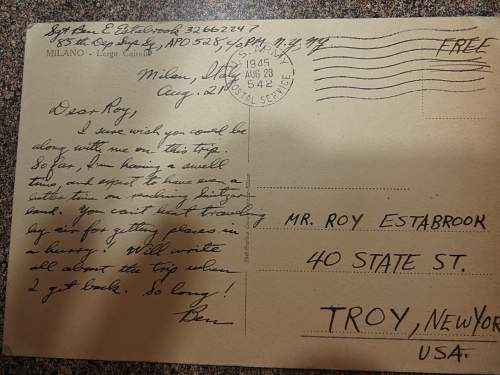 Sgt Ben E Estabrook 32662247
85th Dep Sup Sq, APO 528, c/o PM, N.Y, NY
MILANO - Largo Cairoli
FREE
U.S. ARMY
1945
AUG 23
542
POSTAL SERVICE
Milan, Italy
Aug. 21
Dear Roy,
I sure wish you could be
along with me on this trip.
So far, I'm having a swell
time, and expect to have even a
better time on reaching Switzer-
land. You can't beat traveling
by air for getting places in
a hurry! Will write
all about the trip when
I get back. So long!
Ben
MR. ROY ESTABROOK
40 STATE ST.
TROY, NEW YOR
USA.